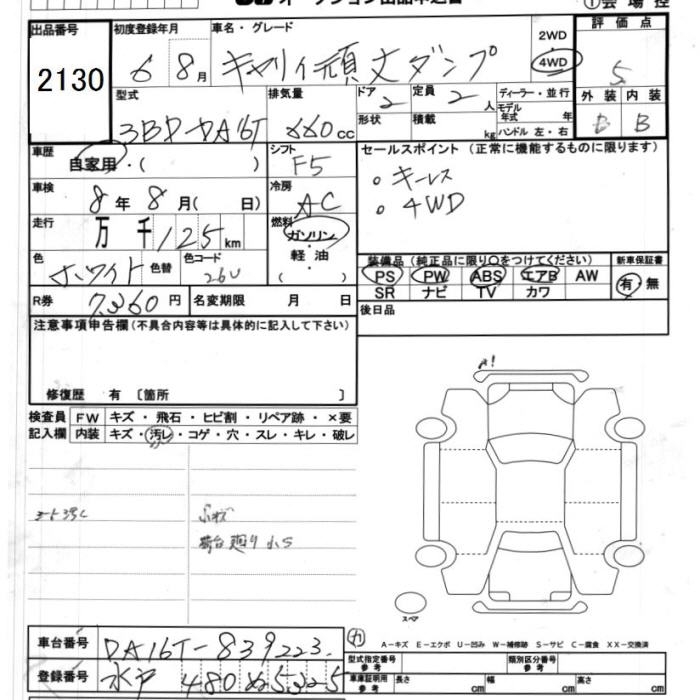 出品番号 2130
初度登録年月 6 8月
車名・グレード キャリィ頑丈ダンプ
2WD
4WD
評価点 5
外装 内装 B
型式 3BD-DA16T
排気量 660cc
ドア 2
定員 2人
形状
積載 kg
ディーラー・並行
モデル年式 年
ハンドル 左・右
車歴 自家用・( )
シフト F5
セールスポイント(正常に機能するものに限ります)
。キーレス
。4WD
車検 8年8月( 日)
冷房 AC
走行 万 千 125km
燃料 ガソリン・軽油・( )
色 ホワイト 色替
色コード 26U
装備品(純正品に限り○をつけてください)
PS PW ABS エアB AW
SR ナビ TV カワ
新車保証書 有・無
R券 7,360円
名変期限 月 日
後日品
注意事項申告欄(不具合内容等は具体的に記入して下さい)
修復歴 有 〔箇所 〕
検査員記入欄
FW キズ・飛石・ヒビ割・リペア跡・×要
内装 キズ・汚レ・コゲ・穴・スレ・キレ・破レ
小キズ
荷台廻り小S
A1
スペア
カ
A-キズ E-エクボ U-凹み W-補修跡 S-サビ C-腐食 XX-交換済
車台番号 DA16T-839223
型式指定番号 参考
類別区分番号 参考
登録番号 水戸 480 に 5325
車庫証明用参考 長さ cm 幅 cm 高さ cm